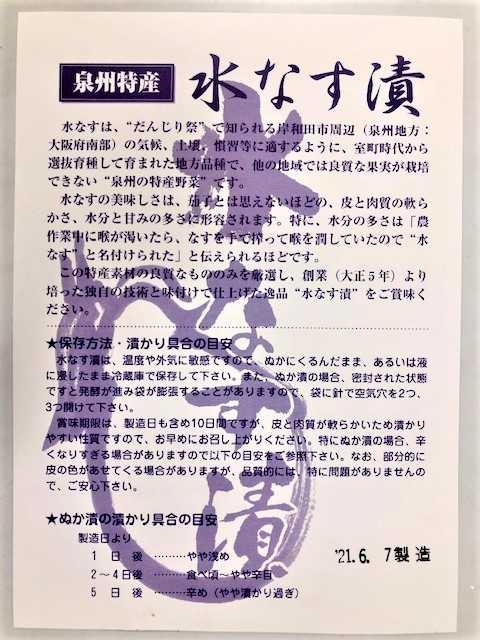 泉州特産 水なす漬
水なすは、“だんじり祭”で知られる岸和田市周辺（泉州地方：
大阪府南部）の気候、土壌、慣習等に適するように、室町時代から
選抜育種して育まれた地方品種で、他の地域では良質な果実が栽培
できない“泉州の特産野菜”です。
水なすの美味しさは、茄子とは思えないほどの、皮と肉質の軟ら
かさ、水分と甘みの多さに形容されます。特に、水分の多さは「農
作業中に喉が渇いたら、なすを手で搾って喉を潤していたので“水
なす”と名付けられた」と伝えられるほどです。
この特産素材の良質なもののみを厳選し、創業（大正５年）より
培った独自の技術と味付けで仕上げた逸品“水なす漬”をご賞味く
ださい。
★保存方法・漬かり具合の目安
水なす漬は、温度や外気に敏感ですので、ぬかにくるんだまま、あるいは液
に浸したまま冷蔵庫で保存して下さい。また、ぬか漬の場合、密封された状態
ですと発酵が進み袋が膨張することがありますので、袋に針で空気穴を2つ、
3つ開けて下さい。
賞味期限は、製造日も含め10日間ですが、皮と肉質が軟らかいため漬かり
やすい性質ですので、お早めにお召し上がりください。特にぬか漬の場合、辛
くなりすぎる場合がありますので以下の目安をご参照下さい。なお、部分的に
皮の色があせてくる場合がありますが、品質的には、特に問題がありませんの
で、ご安心下さい。
★ぬか漬の漬かり具合の目安
製造日より
1 日 後 ………やや浅め
2～4日後 ………食べ頃～やや辛目
5 日 後 ………辛め（やや漬かり過ぎ）
'21.6. 7製造
水なす漬